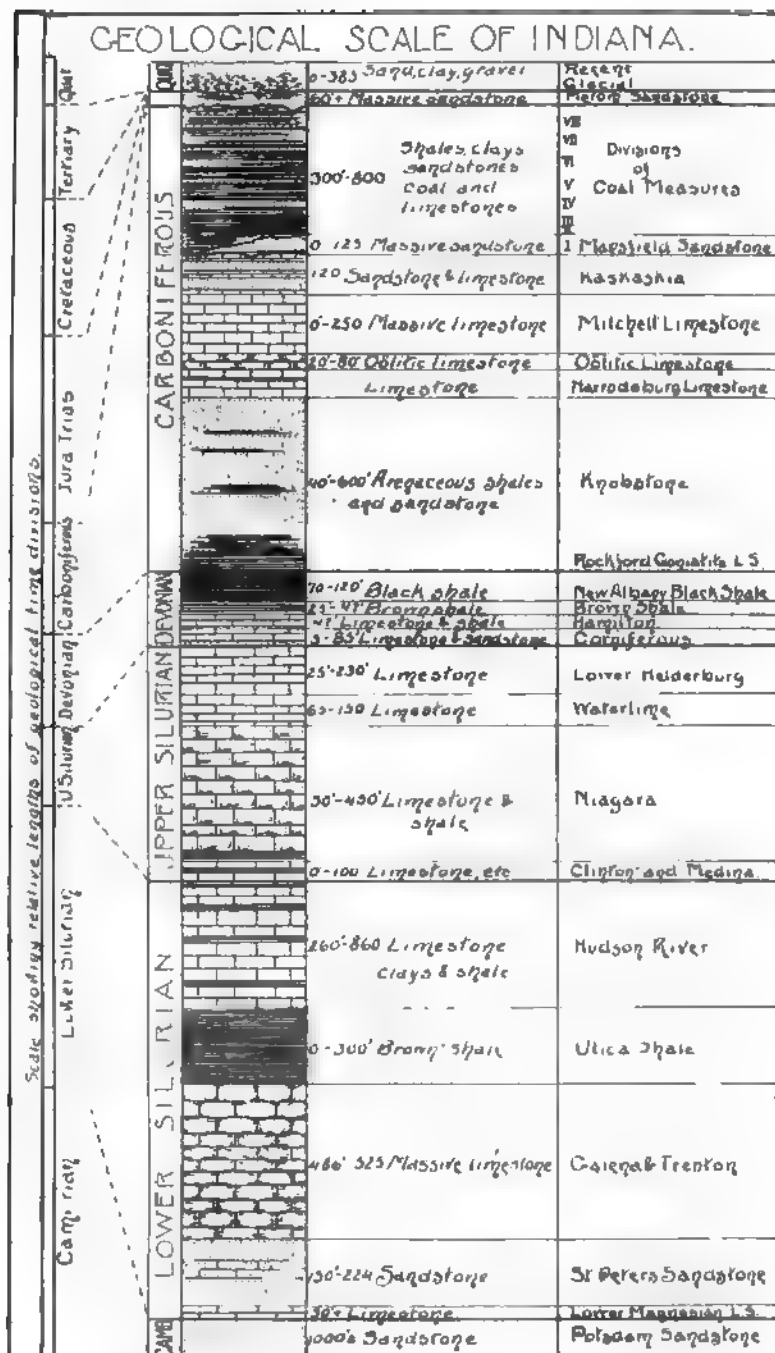 GEOLOGICAL SCALE OF INDIANA.
Scale showing relative lengths of geological time divisions.
Quat
Tertiary
Cretaceous
Jura Trias
Carboniferous
Devonian
U Silurian
Lower Silurian
Cambrian
QUAT
CARBONIFEROUS
DEVONIAN
UPPER SILURIAN
LOWER SILURIAN
CAMB
0-385 Sand, clay, gravel
Recent
Glacial
60'+ Massive sandstone
Merom Sandstone
300'-800
Shales, clays
sandstones
Coal and
limestones
VIII
VII
VI
V
IV
III
II
Divisions
of
Coal Measures
0-125 Massive sandstone
I Mansfield Sandstone
120 Sandstone & limestone
Kaskaskia
0'-250 Massive limestone
Mitchell Limestone
20'-80' Oolitic limestone
Oolitic Limestone
Limestone
Harrodsburg Limestone
40'-600' Arenaceous shales
and sandstone
Knobstone
Rockford Goniatite L.S.
70-120' Black shale
New Albany Black Shale
Brown shale
Brown Shale
Limestone & shale
Hamilton
Limestone & Sandstone
Corniferous
25'-230' Limestone
Lower Helderburg
65-150 Limestone
Waterlime
50'-450' Limestone &
shale
Niagara
0-100 Limestone, etc
Clinton and Medina
260'-860 Limestone
clays & shale
Hudson River
0-300' Brown Shale
Utica Shale
486' 525 Massive limestone
Galena & Trenton
150'-224 Sandstone
St Peters Sandstone
50'+ Limestone
Lower Magnesian L.S.
1000's Sandstone
Potsdam Sandstone